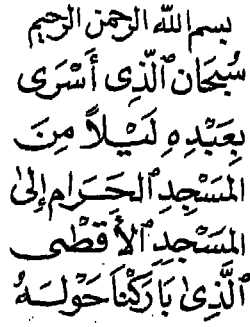 بسم الله الرحمن الرحيم
سُبْحَانَ ٱلَّذِى أَسْرَى
بِعَبْدِهِ لَيْلاً مِنَ
المَسْجِدِ ٱلحَرَامِ إِلىَٰ
المَسْجِدِ ٱلأَقْصَى
ٱلَّذِى بَارَكْنَا حَوْلَهُ